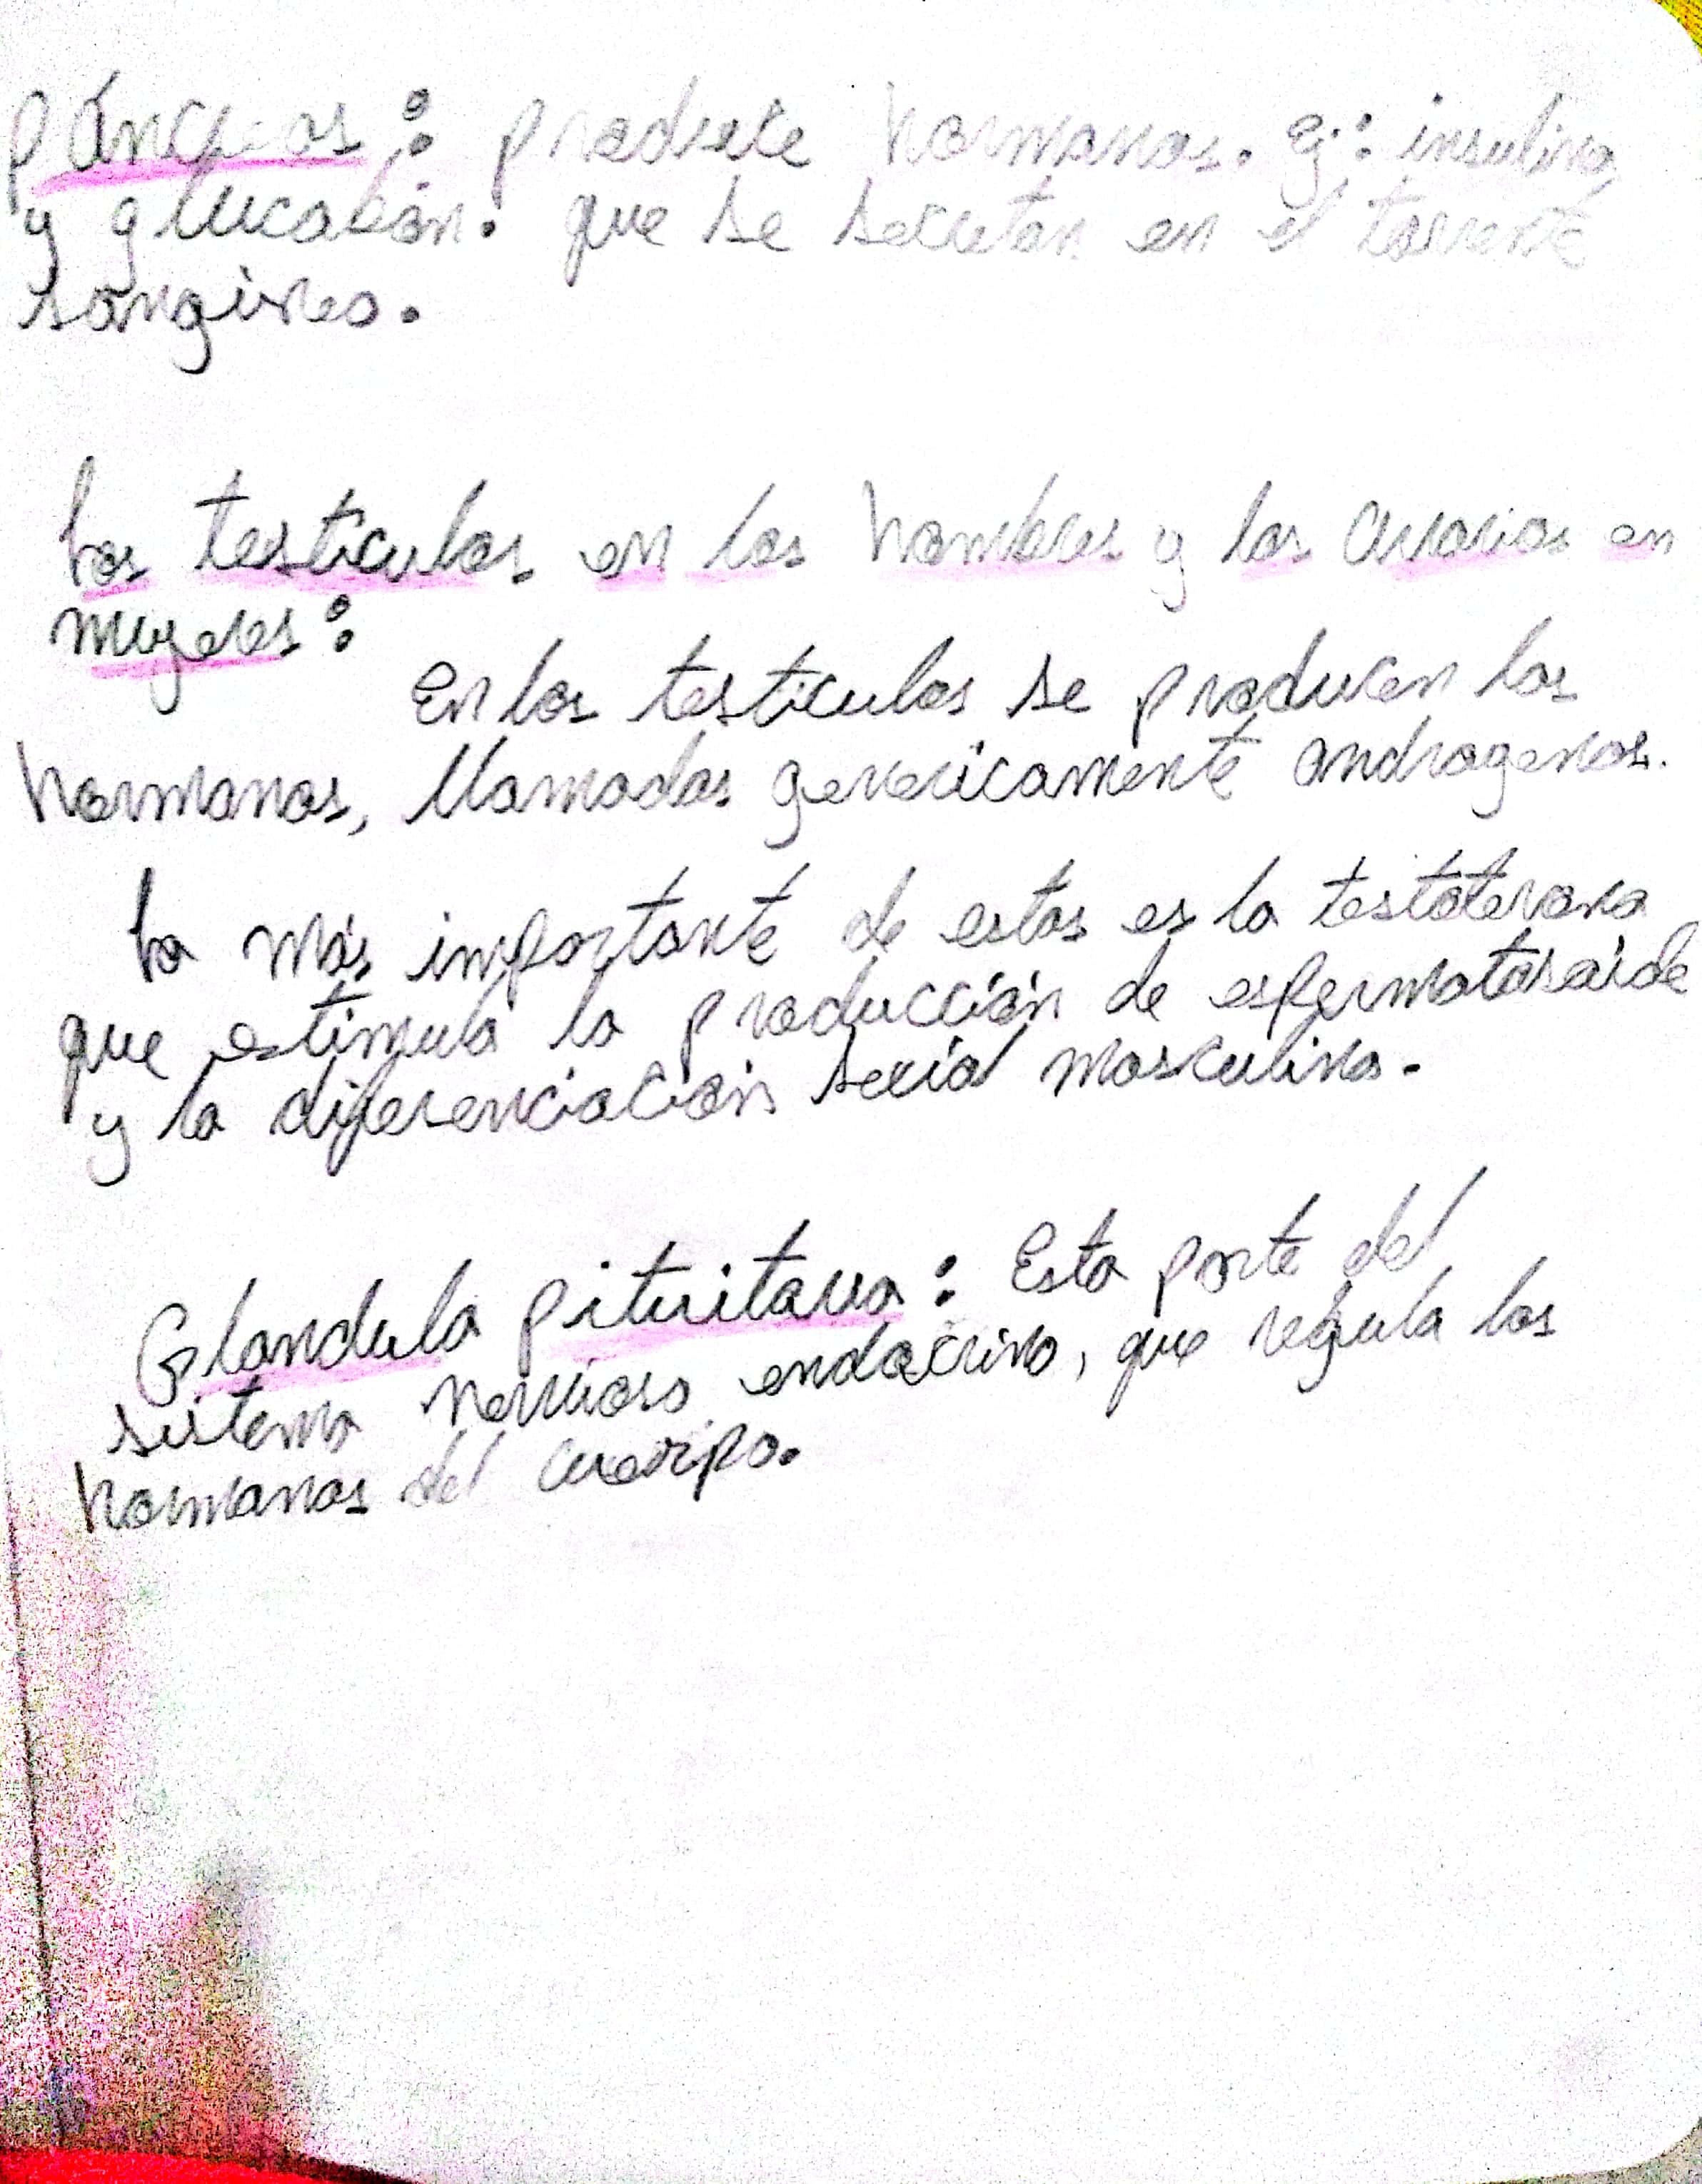 páncreas: produce hormonas. ej: insulina,
y glucabón. que se secretan en el torrente
sangineo.
Los testiculos en los hombres y los ovarios en
mujeres:
En los testiculos se producen las
hormonas, llamadas genericamente androgenos.
La más importante de estas es la testoterona
que estimula la producción de espermatozoide
y la diferenciación sexial masculina.
Glandula pituitaria: Esta parte del
sistema nervioso endocrino, que regula las
hormonas del cuerpo.